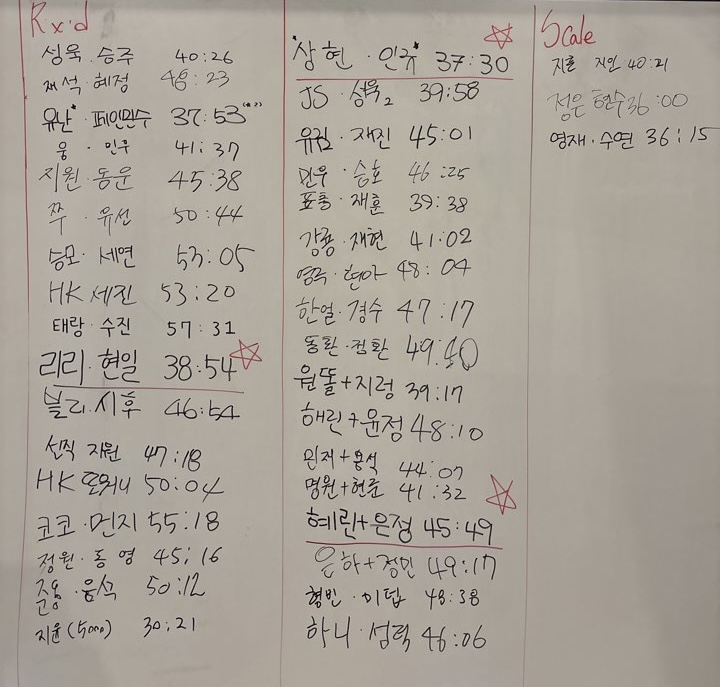 Rxd
성욱·승주 40:26
재석·혜정 48:23
유난·페인민수 37:53
웅·인우 41:37
지원·동운 45:38
쭈·유선 50:44
승모·세연 53:05
HK 세진 53:20
태랑·수진 57:31
리리·현일 38:54
블리·시후 46:54
선직 지원 47:18
HK 50:04
코코·먼지 55:18
정원·동영 45:16
·음식 50:12
지윤(5000) 30:21
상현·인규 37:30
JS·성욱2 39:58
유권·재진 45:01
민우·승호 46:25
표총·재훈 39:38
강룡·재현 41:02
영국·현아 48:04
한얼·경수 47:17
동환·점환 49:40
원똘+지렁 39:17
해린+윤정 48:10
민재+용석 44:07
명원+현준 41:32
혜린+은정 45:49
은하+정민 49:17
형빈·미덥 48:38
하니·섬력 46:06
Scale
지훈 지안 40:21
정은 현수 36:00
영재·수연 36:15